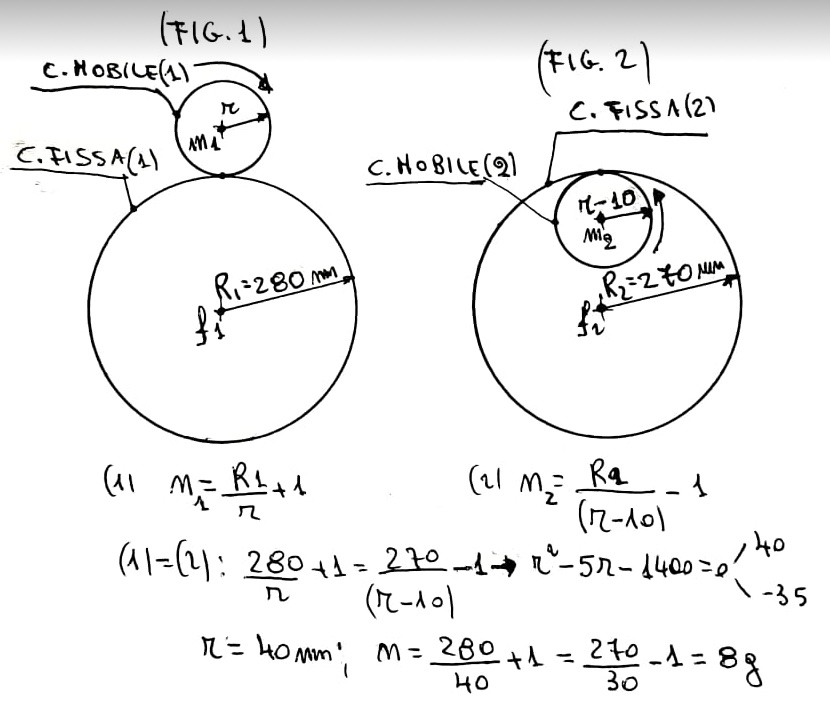 (FIG. 1)
C. MOBILE(1)
r
m1
C. FISSA(1)
R1=280 mm
f1
(FIG. 2)
C. FISSA(2)
C. MOBILE(2)
r-10
m2
R2=270 mm
f2
(1) n1 = R1/r + 1
(2) n2 = R2/(r-10) - 1
(1)=(2): 280/r + 1 = 270/(r-10) - 1 → r² - 5r - 1400 = 0 40
-35
r = 40 mm; n = 280/40 + 1 = 270/30 - 1 = 8 g